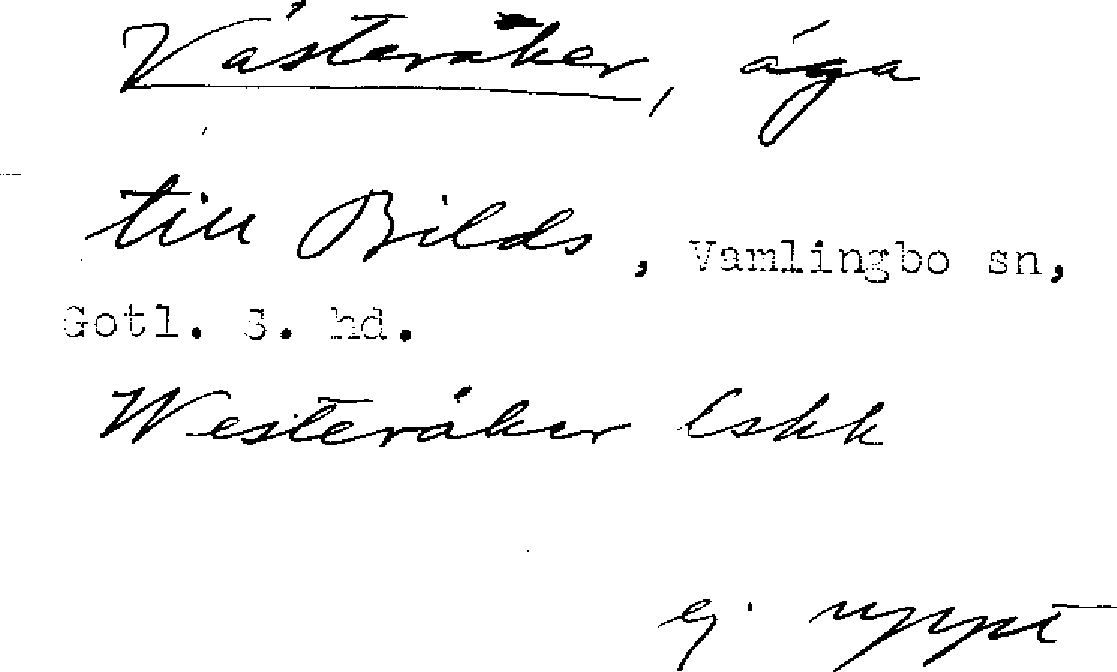 Västeråker, äga
till Bilds, Vamlingbo sn,
Gotl. S. hd.
Westeråker lskk
ej uppt